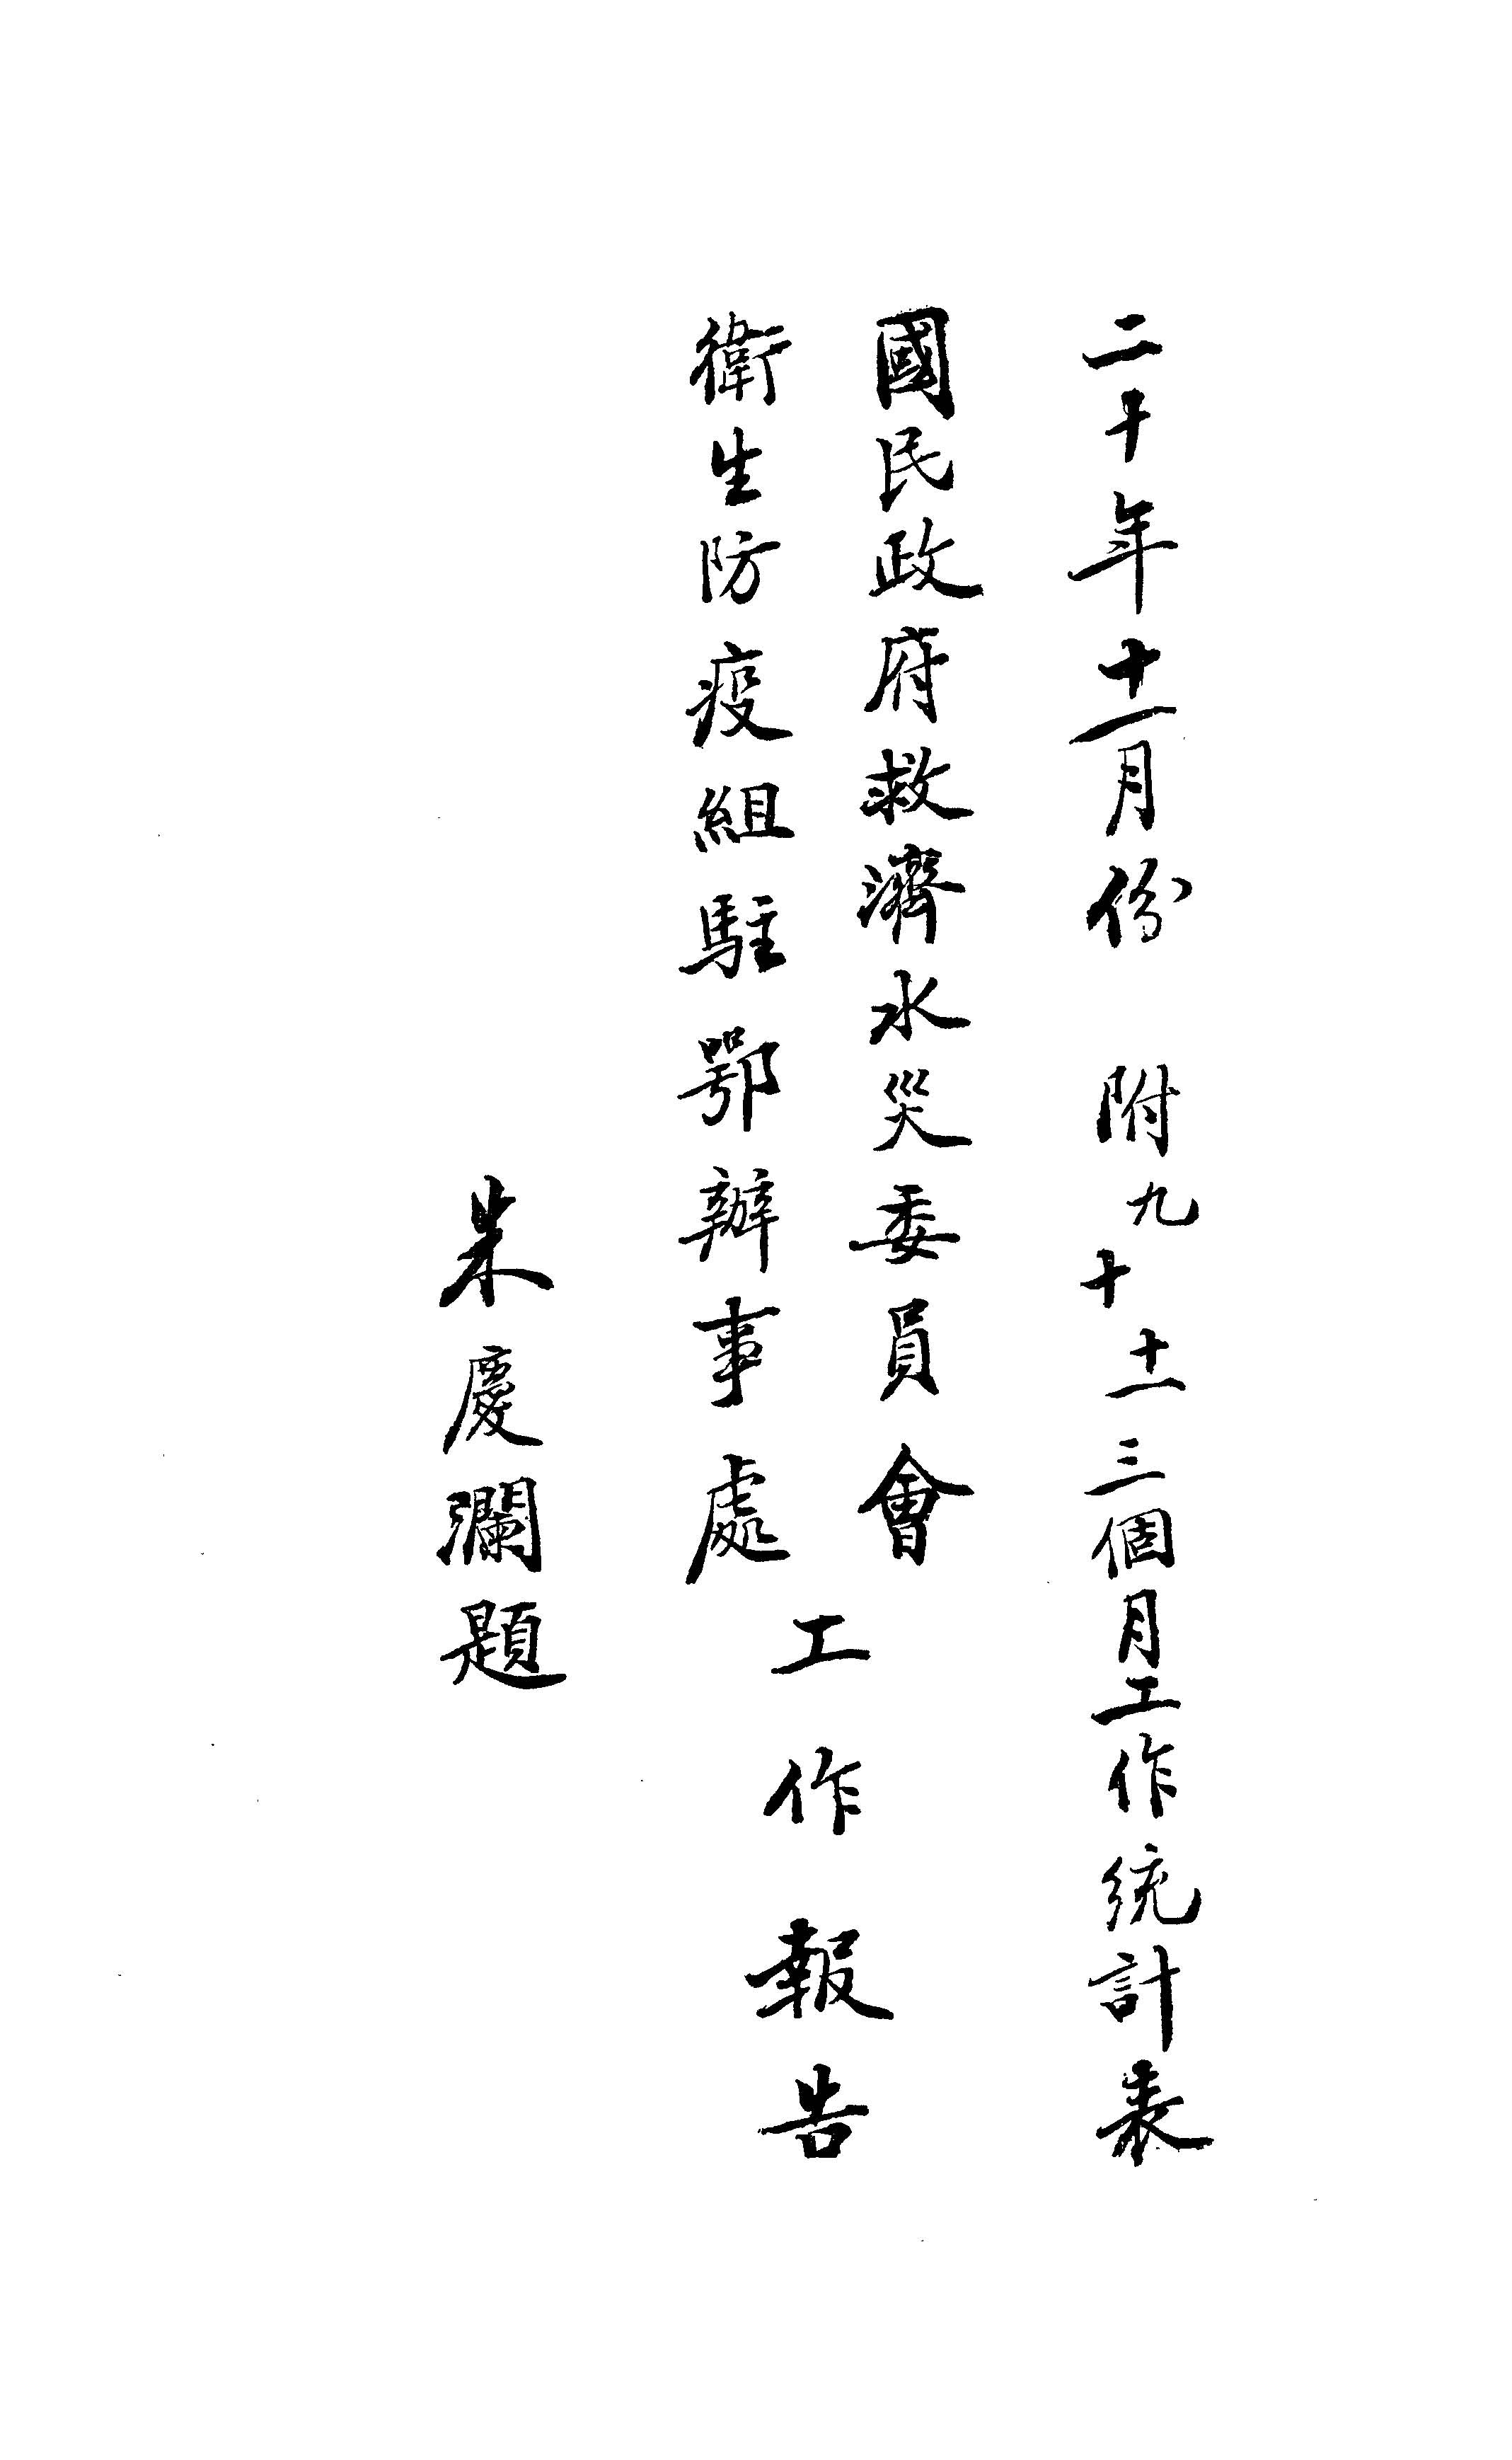 二十年十一月份 附九十十一三個月工作統計表
國民政府救濟水災委員會
衛生防疫組駐鄂辦事處
工作報告
朱慶瀾題